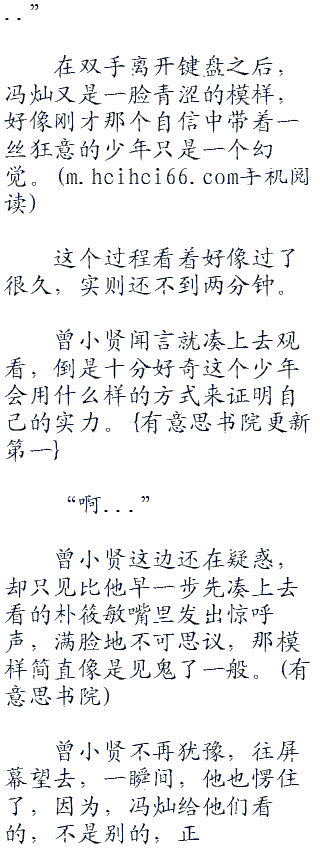 ..”
在双手离开键盘之后，
冯灿又是一脸青涩的模样，
好像刚才那个自信中带着一
丝狂意的少年只是一个幻
觉。(m.hcihci66.com手机阅
读)
这个过程看着好像过了
很久，实则还不到两分钟。
曾小贤闻言就凑上去观
看，倒是十分好奇这个少年
会用什么样的方式来证明自
己的实力。{有意思书院更新
第一}
“啊...”
曾小贤这边还在疑惑，
却只见比他早一步先凑上去
看的朴筱敏嘴里发出惊呼
声，满脸地不可思议，那模
样简直像是见鬼了一般。(有
意思书院)
曾小贤不再犹豫，往屏
幕望去，一瞬间，他也愣住
了，因为，冯灿给他们看
的，不是别的，正